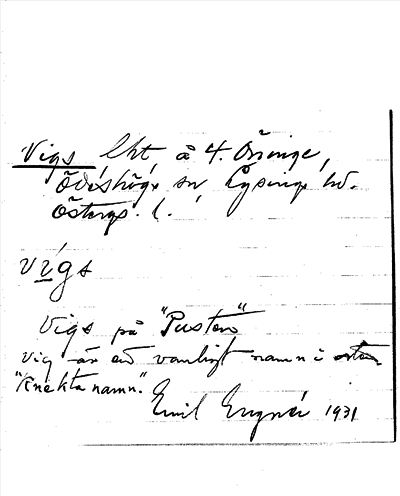 Vigs lht å 4. Öninge,
Ödeshögs sn Lysings hd.
Östergs. l.
vigs
Vigs på "Pusten"
Vig är ett vanligt namn i
"Knektanamn."
Emil 1931